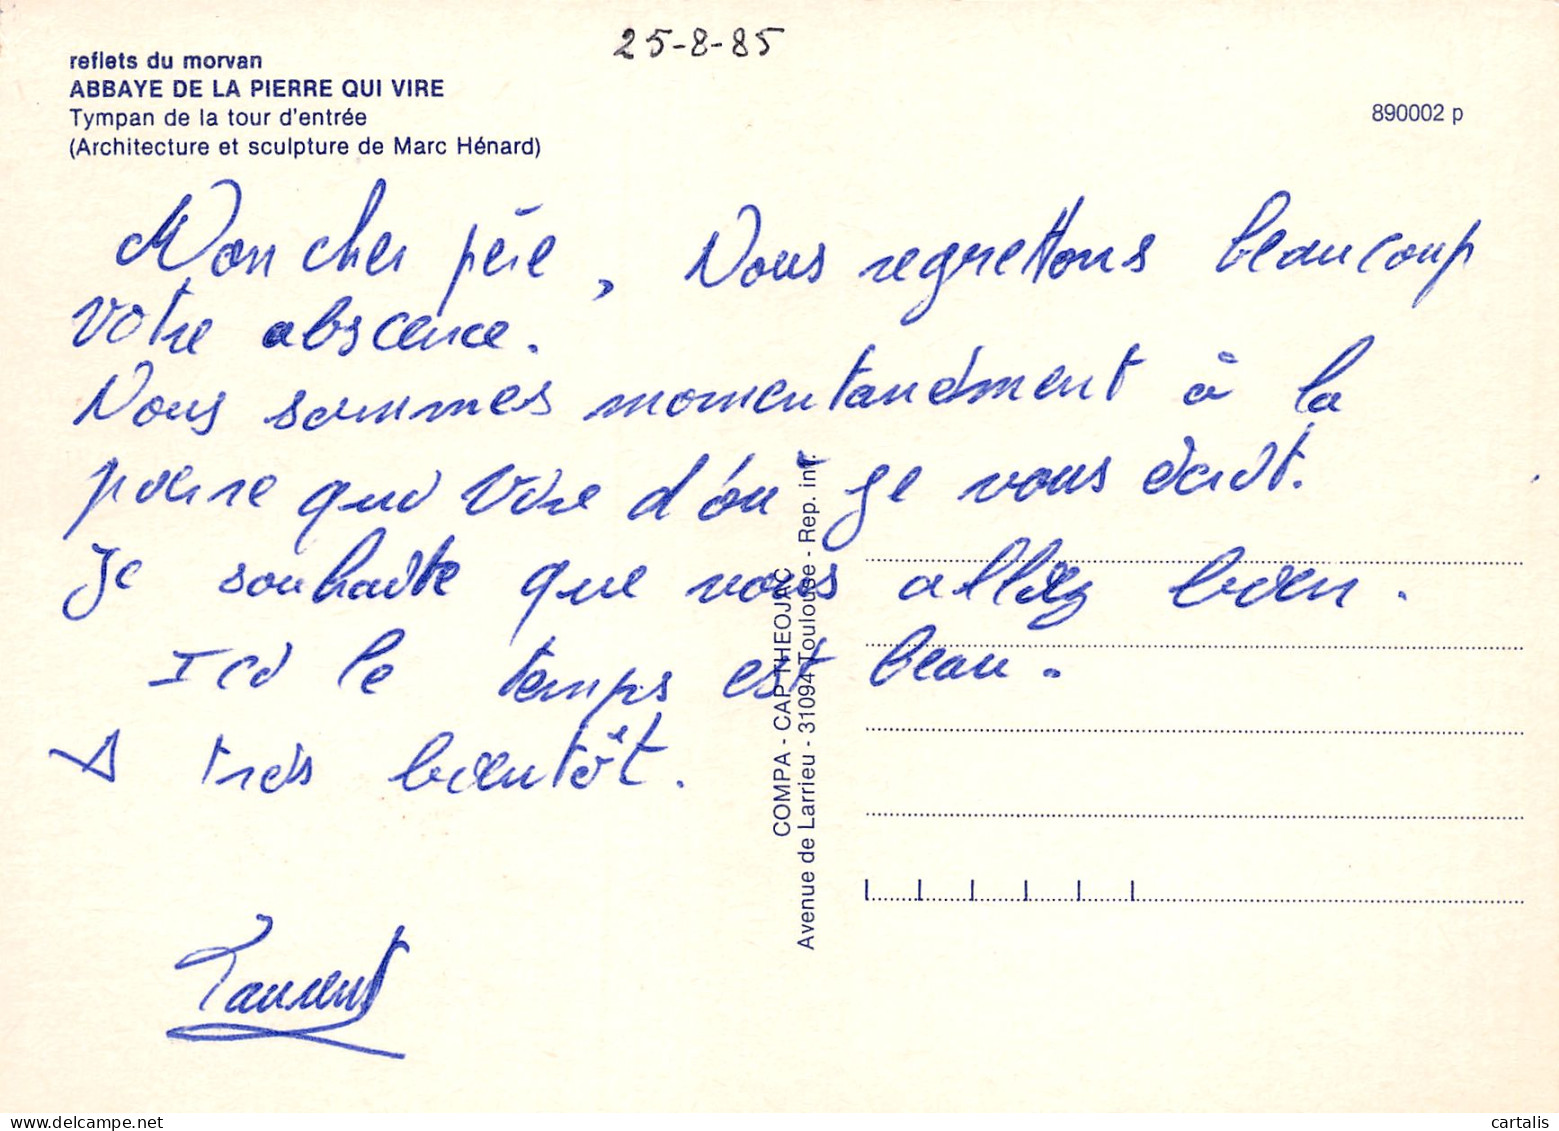 25-8-85
reflets du morvan
ABBAYE DE LA PIERRE QUI VIRE
Tympan de la tour d'entrée
(Architecture et sculpture de Marc Hénard)
890002 p
Mon cher père, Nous regrettons beaucoup
votre abscence.
Nous sommes momentanément à la
pierre qui Vire d'où je vous écrit.
Je souhaite que vous alliez bien.
Ici le temps est beau.
A très bientôt.
Laurent
COMPA - CAP-THEOJAC
Avenue de Larrieu - 31094 Toulouse - Rep. int.
cartalis